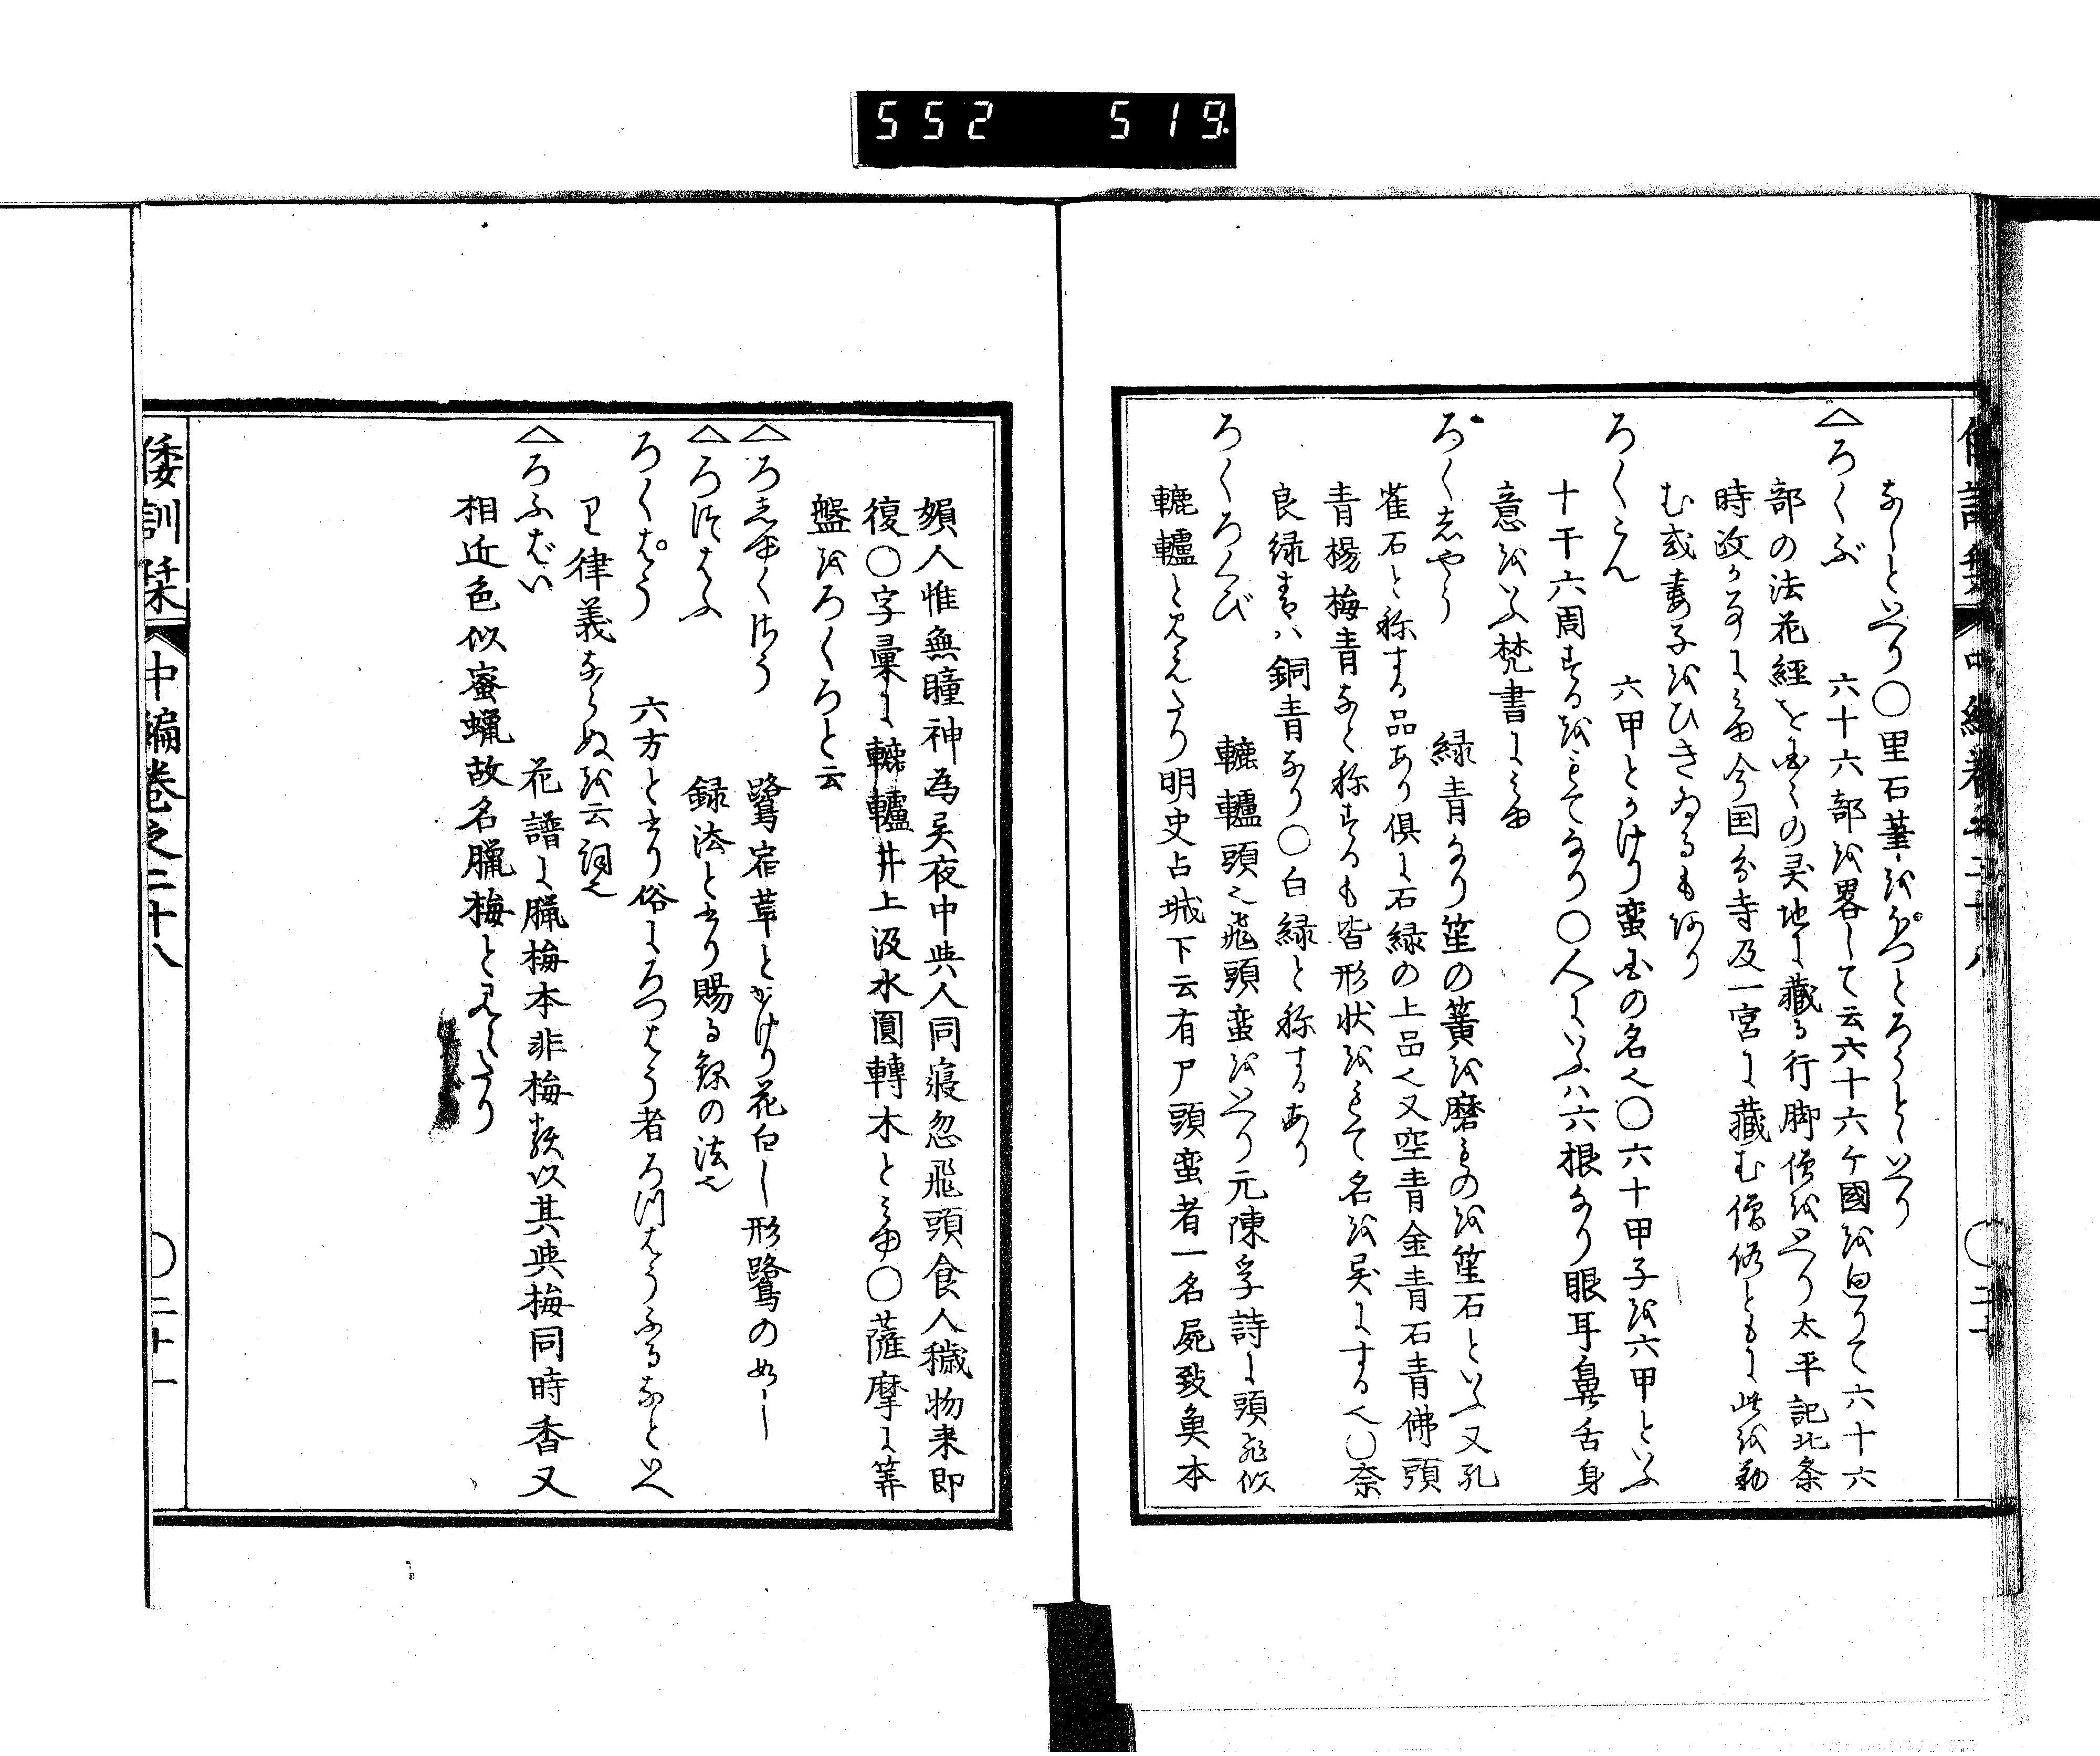 552 519
なしといへり〇里石菫をぽつとろうとといへり
△ろくぶ 六十六部を畧して云六十六ケ國を廻りて六十六
部の法花經を国々の灵地に藏る行脚僧をいへり太平記北条
時政か事に見ゆ今国分寺及一宮に藏む僧俗ともに此を勤
む或妻子をひきゐるもあり
ろくこん 六甲とかけり蛮国の名也〇六十甲子を六甲といふ
十干六周するをもてなり〇人にいふハ六根なり眼耳鼻舌身
意をいふ梵書に見ゆ
ろくしやう 緑青なり笙の簧を磨ものを笙石といふ又孔
雀石と称する品あり倶に石緑の上品也又空青金青石青佛頭
青楊梅青なと称するも皆形状をもて名を异にする也〇奈
良緑青ハ銅青なり〇白緑と称するあり
ろくろくび 轆轤頭也飛頭蛮をいへり元陳孚詩に頭飛似
轆轤と見えたり明史占城下云有尸頭蛮者一名屍致魚本
倭訓栞 中編巻之二十八 〇二十一
婦人惟無瞳神為异夜中與人同寢忽飛頭食人穢物来即
復〇字彙に轆轤井上汲水圓轉木と見ゆ〇薩摩に筭
盤をろくろと云
△ろしゆくさう 鷺宿草とかけり花白し形鷺の如し
△ろくはふ 録法と書り賜る録の法也
ろくぱう 六方と書り俗にろつはう者ろつはうふるなといへ
り律義ならぬを云詞也
△ろふばい 花譜に臘梅本非梅類以其與梅同時香又
相近色似蜜蝋故名臘梅と見えたり